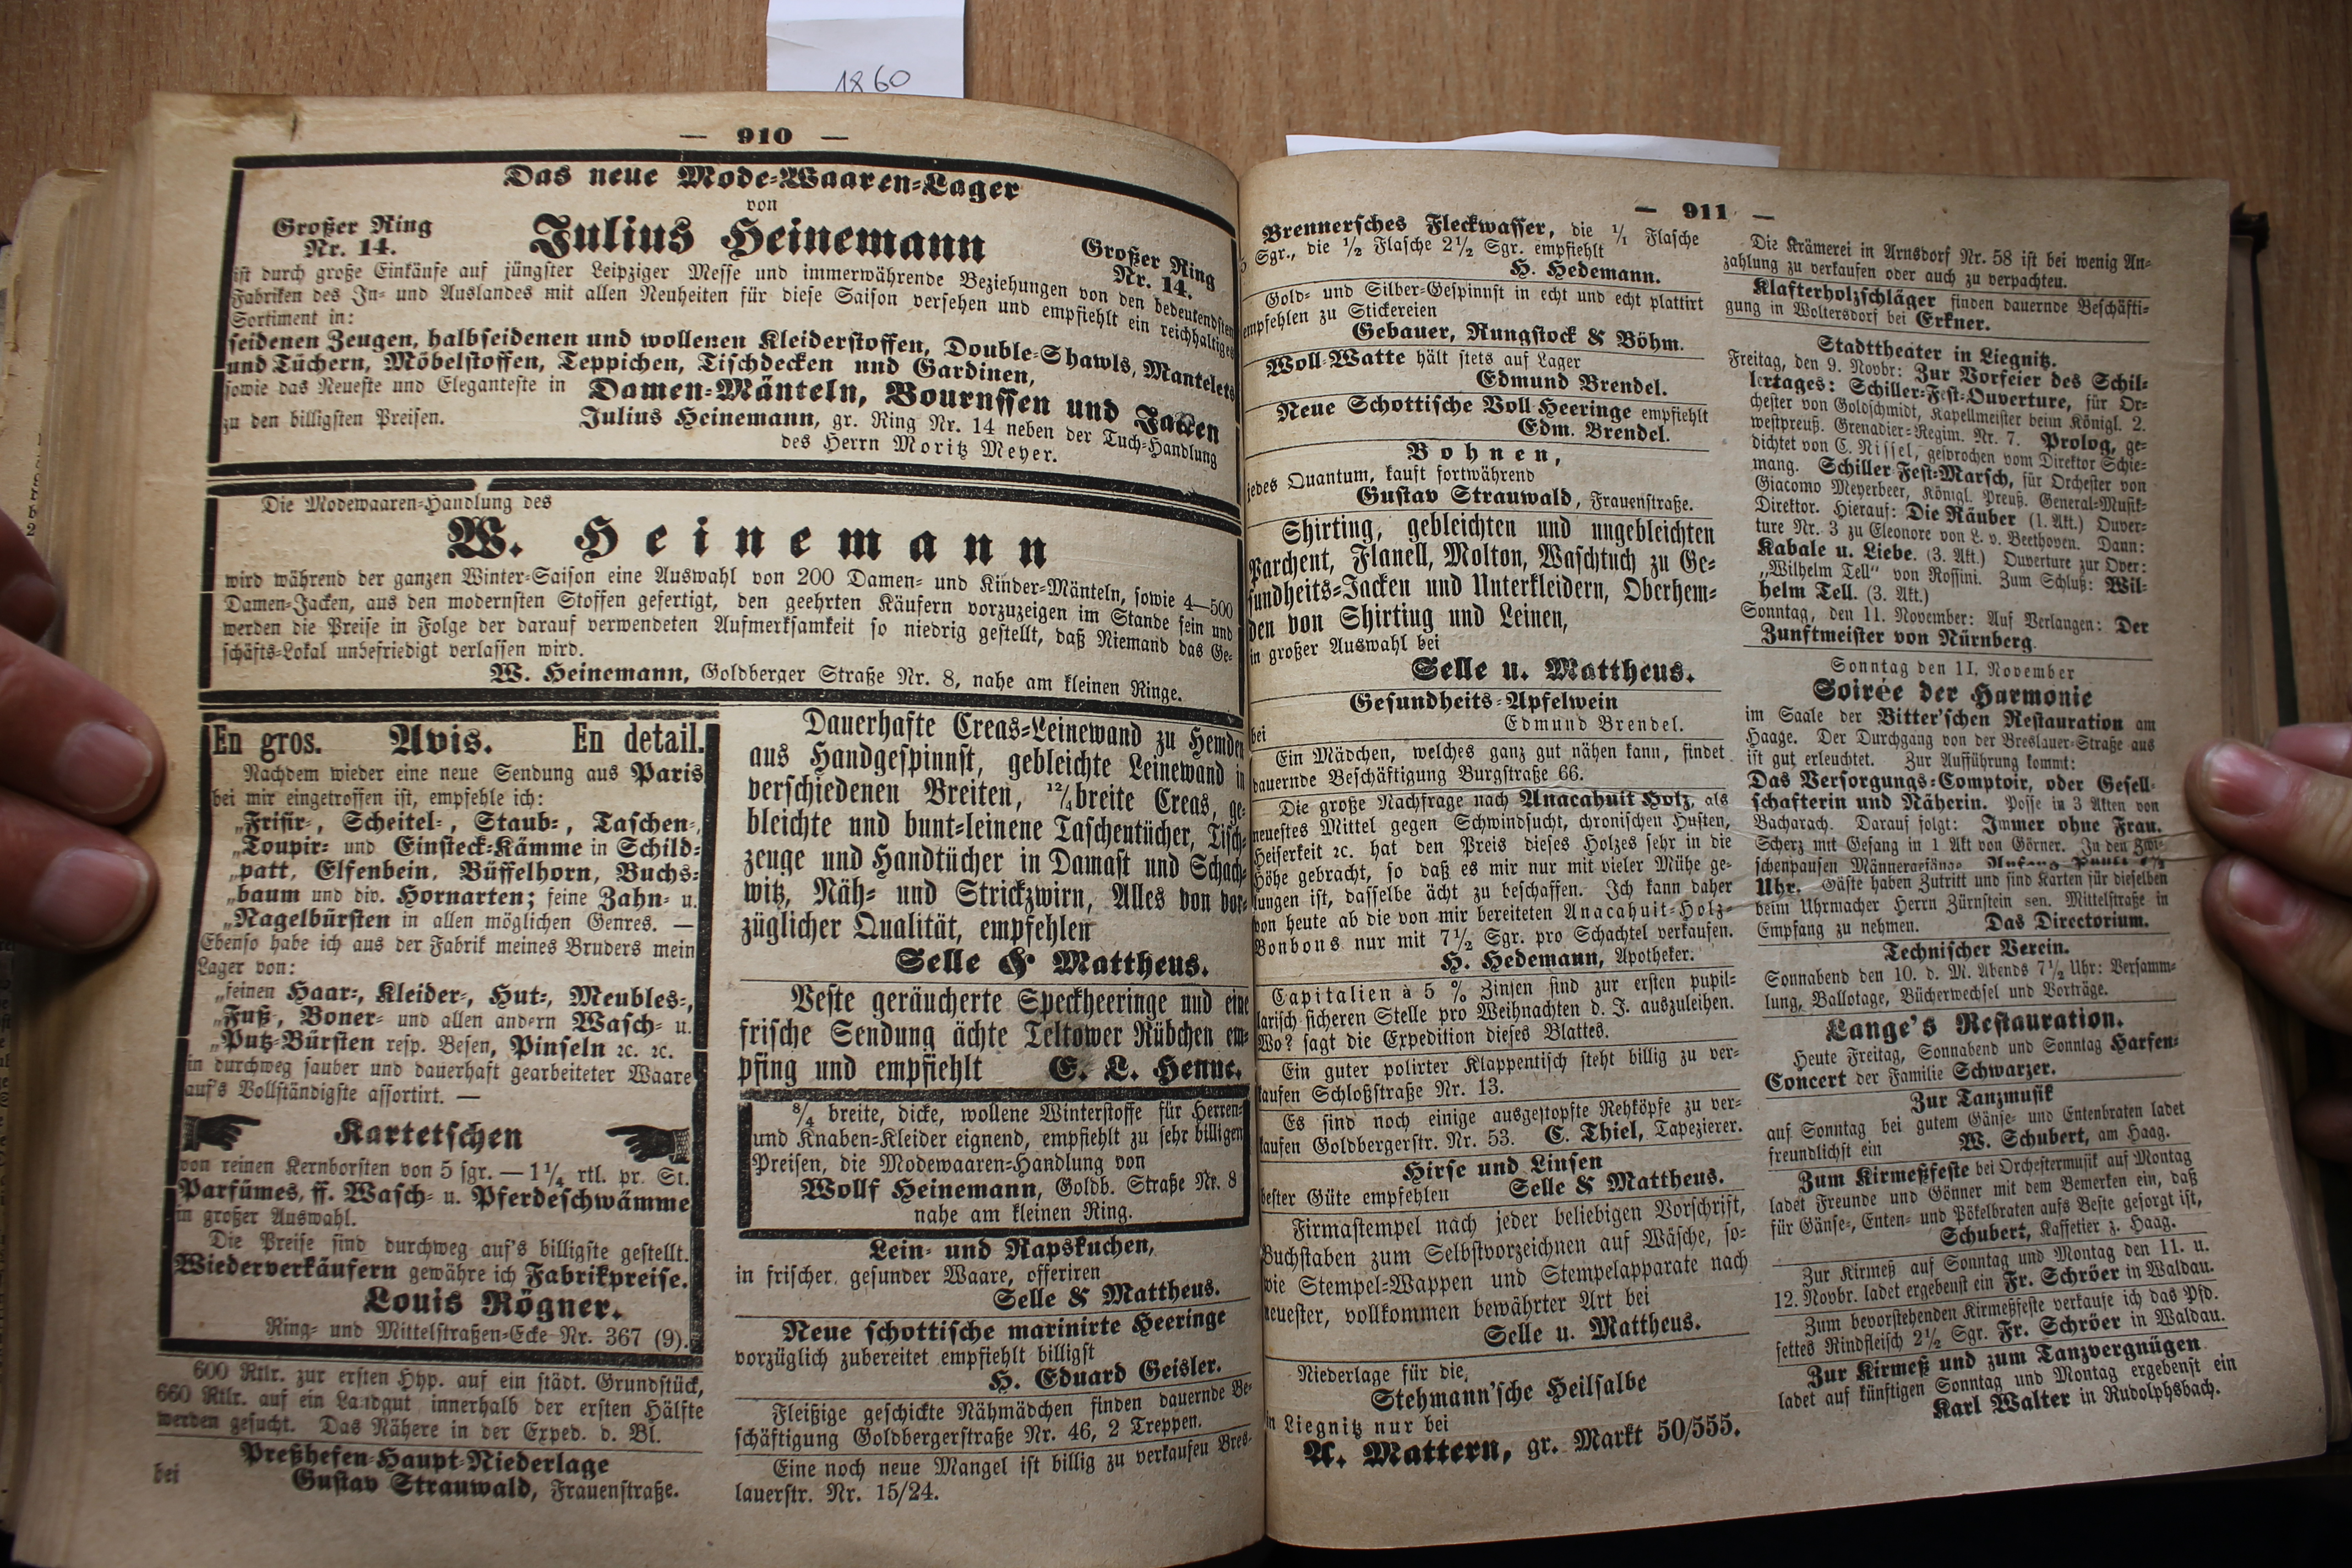 1860
— 910 —
Das neue Mode-Waaren-Lager
von
Großer Ring
Nr. 14.
Julius Heinemann
Großer Ring
Nr. 14.
ist durch große Einkäufe auf jüngster Leipziger Messe und immerwährende Beziehungen von den bedeutendsten
Fabriken des In- und Auslandes mit allen Neuheiten für diese Saison versehen und empfiehlt ein reichhaltiges
Sortiment in:
seidenen Zeugen, halbseidenen und wollenen Kleiderstoffen, Double-Shawls, Mantelets
und Tüchern, Möbelstoffen, Teppichen, Tischdecken und Gardinen,
sowie das Neueste und Eleganteste in Damen-Mänteln, Bournssen und Jacken
zu den billigsten Preisen.
Julius Heinemann, gr. Ring Nr. 14 neben der Tuch-Handlung
des Herrn Moritz Meyer.
Die Modewaaren-Handlung des
W. Heinemann
wird während der ganzen Winter-Saison eine Auswahl von 200 Damen- und Kinder-Mänteln, sowie 4—500
Damen-Jacken, aus den modernsten Stoffen gefertigt, den geehrten Käufern vorzuzeigen im Stande sein und
werden die Preise in Folge der darauf verwendeten Aufmerksamkeit so niedrig gestellt, daß Niemand das Ge-
schäfts-Lokal unbefriedigt verlassen wird.
W. Heinemann, Goldberger Straße Nr. 8, nahe am kleinen Ringe.
En gros. Avis. En detail.
Nachdem wieder eine neue Sendung aus Paris
bei mir eingetroffen ist, empfehle ich:
„Frisir-, Scheitel-, Staub-, Taschen-,
„Toupir- und Einsteck-Kämme in Schild-
„patt, Elfenbein, Büffelhorn, Buchs-
„baum und div. Hornarten; feine Zahn- u.
„Nagelbürsten in allen möglichen Genres. —
Ebenso habe ich aus der Fabrik meines Bruders mein
Lager von:
„feinen Haar-, Kleider-, Hut-, Meubles-,
„Fuß, Boner- und allen andern Wasch- u.
„Putz-Bürsten resp. Besen, Pinseln ꝛc. ꝛc.
in durchweg sauber und dauerhaft gearbeiteter Waare
auf's Vollständigste assortirt. —
Kartetschen
von reinen Kernborsten von 5 sgr. — 1¼ rtl. pr. St.
Parfümes, ff. Wasch- u. Pferdeschwämme
in großer Auswahl.
Die Preise sind durchweg auf's billigste gestellt.
Wiederverkäufern gewähre ich Fabrikpreise.
Louis Rögner.
Ring- und Mittelstraßen-Ecke Nr. 367 (9).
600 Rtlr. zur ersten Hyp. auf ein städt. Grundstück,
660 Rtlr. auf ein Landgut innerhalb der ersten Hälfte
werden gesucht. Das Nähere in der Exped. d. Bl.
Preßhefen-Haupt-Niederlage
bei
Gustav Strauwald, Frauenstraße.
Dauerhafte Creas-Leinewand zu Hemden
aus Handgespinnst, gebleichte Leinewand in
verschiedenen Breiten, 12/4 breite Creas, ge-
bleichte und bunt-leinene Taschentücher, Tisch-
zeuge und Handtücher in Damast und Schach-
witz, Näh- und Strickzwirn, Alles von vor-
züglicher Qualität, empfehlen
Selle & Mattheus.
Veste geräucherte Speckheeringe und eine
frische Sendung ächte Teltower Rübchen em-
pfing und empfiehlt E. L. Henne.
8/4 breite, dicke, wollene Winterstoffe für Herren-
und Knaben-Kleider eignend, empfiehlt zu sehr billigen
Preisen, die Modewaaren-Handlung von
Wollf Heinemann, Goldb. Straße Nr. 8
nahe am kleinen Ring.
Lein- und Rapskuchen,
in frischer, gesunder Waare, offeriren
Selle & Mattheus.
Neue schottische marinirte Heeringe
vorzüglich zubereitet empfiehlt billigst
H. Eduard Geisler.
Fleißige geschickte Nähmädchen finden dauernde Be-
schäftigung Goldbergerstraße Nr. 46, 2 Treppen.
Eine noch neue Mangel ist billig zu verkaufen Bres-
lauerstr. Nr. 15/24.
— 911 —
Brennersches Fleckwasser, die 1/1 Flasche
Sgr., die ½ Flasche 2½ Sgr. empfiehlt
H. Hedemann.
Gold- und Silber-Gespinnst in echt und echt plattirt
empfehlen zu Stickereien
Gebauer, Rungstock & Böhm.
Woll-Watte hält stets auf Lager
Edmund Brendel.
Neue Schottische Voll-Heeringe empfiehlt
Edm. Brendel.
Bohnen,
jedes Quantum, kauft fortwährend
Gustav Strauwald, Frauenstraße.
Shirting, gebleichten und ungebleichten
Parchent, Flanell, Molton, Waschtuch zu Ge-
sundheits-Jacken und Unterkleidern, Oberhem-
den von Shirting und Leinen,
in großer Auswahl bei
Selle u. Mattheus.
Gesundheits-Apfelwein
bei
Edmund Brendel.
Ein Mädchen, welches ganz gut nähen kann, findet
dauernde Beschäftigung Burgstraße 66.
Die große Nachfrage nach Anacahuit Holz, als
neuestes Mittel gegen Schwindsucht, chronischen Husten,
Heiserkeit ꝛc. hat den Preis dieses Holzes sehr in die
Höhe gebracht, so daß es mir nur mit vieler Mühe ge-
lungen ist, dasselbe ächt zu beschaffen. Ich kann daher
von heute ab die von mir bereiteten Anacahuit-Holz-
Bonbons nur mit 7½ Sgr. pro Schachtel verkaufen.
H. Hedemann, Apotheker.
Capitalien à 5 % Zinsen sind zur ersten pupil-
larisch sicheren Stelle pro Weihnachten d. J. auszuleihen.
Wo? sagt die Expedition dieses Blattes.
Ein guter polirter Klappentisch steht billig zu ver-
kaufen Schloßstraße Nr. 13.
Es sind noch einige ausgestopfte Rehköpfe zu ver-
kaufen Goldbergerstr. Nr. 53. C. Thiel, Tapezierer.
Hirse und Linsen
bester Güte empfehlen Selle & Mattheus.
Firmastempel nach jeder beliebigen Vorschrift,
Buchstaben zum Selbstvorzeichnen auf Wäsche, so-
wie Stempel-Wappen und Stempelapparate nach
neuester, vollkommen bewährter Art bei
Selle u. Mattheus.
Niederlage für die
Stehmann'sche Heilsalbe
in Liegnitz nur bei
A. Mattern, gr. Markt 50/555.
Die Krämerei in Arnsdorf Nr. 58 ist bei wenig An-
zahlung zu verkaufen oder auch zu verpachten.
Klafterholzschläger finden dauernde Beschäfti-
gung in Woltersdorf bei Erkner.
Stadttheater in Liegnitz.
Freitag, den 9. Novbr: Zur Vorfeier des Schil-
lertages: Schiller-Fest-Ouverture, für Or-
chester von Goldschmidt, Kapellmeister beim Königl. 2.
westpreuß. Grenadier-Regim. Nr. 7. Prolog, ge-
dichtet von C. Nissel, gesprochen vom Direktor Schie-
mang. Schiller-Fest-Marsch, für Orchester von
Giacomo Meyerbeer, Königl. Preuß. General-Musik-
Direktor. Hierauf: Die Räuber (1. Akt.) Ouver-
ture Nr. 3 zu Eleonore von L. v. Beethoven. Dann:
Kabale u. Liebe. (3. Akt.) Ouverture zur Oper:
„Wilhelm Tell“ von Rossini. Zum Schluß: Wil-
helm Tell. (3. Akt.)
Sonntag, den 11. November: Auf Verlangen: Der
Zunftmeister von Nürnberg.
Sonntag den 11. November
Soirée der Harmonie
im Saale der Bitter'schen Restauration am
Haage. Der Durchgang von der Breslauer-Straße aus
ist gut erleuchtet. Zur Aufführung kommt:
Das Versorgungs-Comptoir, oder Gesell-
schafterin und Näherin. Posse in 3 Akten von
Bacharach. Darauf folgt: Immer ohne Frau.
Scherz mit Gesang in 1 Akt von Görner. In den Zwi-
schenpausen Männergesänge. Anfang
Uhr. Gäste haben Zutritt und sind Karten für dieselben
beim Uhrmacher Herrn Zürnstein sen. Mittelstraße in
Empfang zu nehmen. Das Directorium.
Technischer Verein.
Sonnabend den 10. d. M. Abends 7½ Uhr: Versamm-
lung, Ballotage, Bücherwechsel und Vorträge.
Lange's Restauration.
Heute Freitag, Sonnabend und Sonntag Harfen-
Concert der Familie Schwarzer.
Zur Tanzmusik
auf Sonntag bei gutem Gänse- und Entenbraten ladet
freundlichst ein W. Schubert, am Haag.
Zum Kirmeßfeste bei Orchestermusik auf Montag
ladet Freunde und Gönner mit dem Bemerken ein, daß
für Gänse-, Enten- und Pökelbraten aufs Beste gesorgt ist,
Schubert, Kaffetier z. Haag.
Zur Kirmeß auf Sonntag und Montag den 11. u.
12. Novbr. ladet ergebenst ein Fr. Schröer in Waldau.
Zum bevorstehenden Kirmeßfeste verkaufe ich das Pfd.
fettes Rindfleisch 2½ Sgr. Fr. Schröer in Waldau.
Zur Kirmeß und zum Tanzvergnügen
ladet auf künftigen Sonntag und Montag ergebenst ein
Karl Walter in Rudolphsbach.